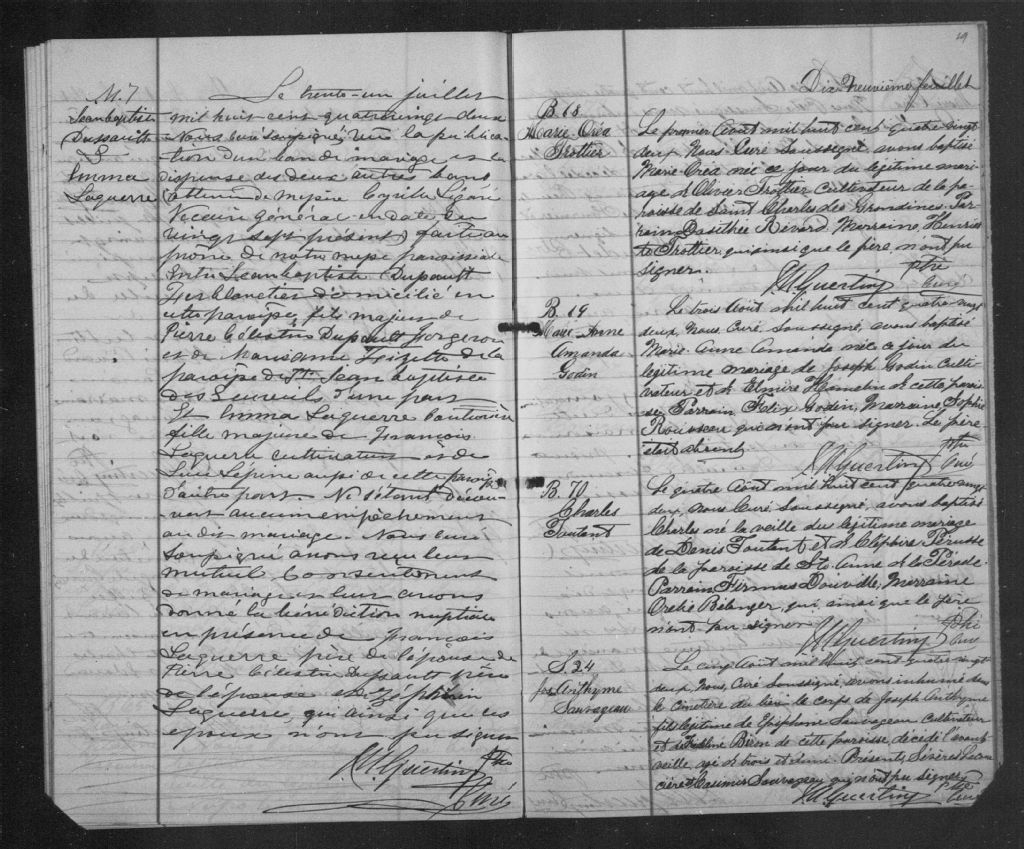 M. 7
Jeanbaptiste
Dussault
&
Emma
Laguerre
Le trente-un juillet
mil huit cent quatrevingt deux
Nous curé soussigné Vu la publica
tion d'un ban de mariage et la
dispense des deux autres bans
obtenue de messire Cyrille Légaré
Vicaire général en date du
vingt sept présent) faite au
prône de notre messe paroissiale
Entre Jeanbaptiste Dussault
Ferblantier domicilié en
cette paroisse, fils majeur de
Pierre Célestin Dussault forgeron
et de Marianne Frigette de la
paroisse de St Jean baptiste
des Ecureuils d'une part
Et Emma Laguerre couturière
fille majeure de François
Laguerre cultivateur et de
Luce Lépine aussi de cette paroisse
d'autre part. Ne s'étant décou-
vert aucun empêchement
au dit mariage. Nous curé
soussigné avons reçu leur
mutuel consentement
de mariage et leur avons
donné la bénédiction nuptiale
en présence de François
Laguerre père de l'épouse de
Pierre Célestin Dussault père
de l'épouse et Zéphirin
Laguerre, qui ainsi que les
époux n'ont pu signer
Guertin Ptre
Curé
19
Dix Neuvième feuillet
B 68
Marie-Oréa
Trottier
Le premier Août mil huit cent quatre vingt
deux Nous Curé Soussigné avons baptisé
Marie Oréa née ce jour du légitime mari-
age d'Olivier Trottier Cultivateur de la pa-
roisse de Saint Charles des Grondines. Par-
rain Dosithée Rivard. Marraine, Henriet-
te Trottier, qui ainsi que le père, n'ont pu
signer.
Guertin ptre
Curé
B. 69
Marie Anne
Amanda
Godin
Le trois Août mil huit cent quatre vingt
deux, Nous, Curé, Soussigné, avons baptisé
Marie-Anne Amanda née ce jour du
légitime mariage de Joseph Godin Culti-
vateur et d'Elmire Hamelin de cette parois-
se. Parrain Felix Godin, Marraine, Sophie
Rousseau qui n'ont pu signer. Le père
était absent.
Guertin ptre
Curé
B. 70
Charles
Toutant
Le quatre Août mil huit cent quatre vingt
deux, Nous Curé Soussigné, avons baptisé
Charles né la veille du légitime mariage
de Denis Toutant et d'Elphire Perusse
de la paroisse de Ste Anne de la Pérade.
Parrain, Firmin Douville, Marraine
Orelie Bélanger, qui, ainsi que le père
n'ont pu signer
Guertin Ptre
Curé
S. 24
Jos Anthyme
Sauvageau
Le cinq Août mil huit cent quatre vingt
deux, Nous, Curé Soussigné avons inhumé dans
le Cimetière du lieu le corps de Joseph Anthyme
fils légitime de Epiphane Sauvageau Cultivateur
et de Biron de cette paroisse, décédé l'avant
veille, agé de trois et demi. Présents, Sévère
et Casimir Sauvageau qui n'ont pu signer.
Guertin ptre
Curé